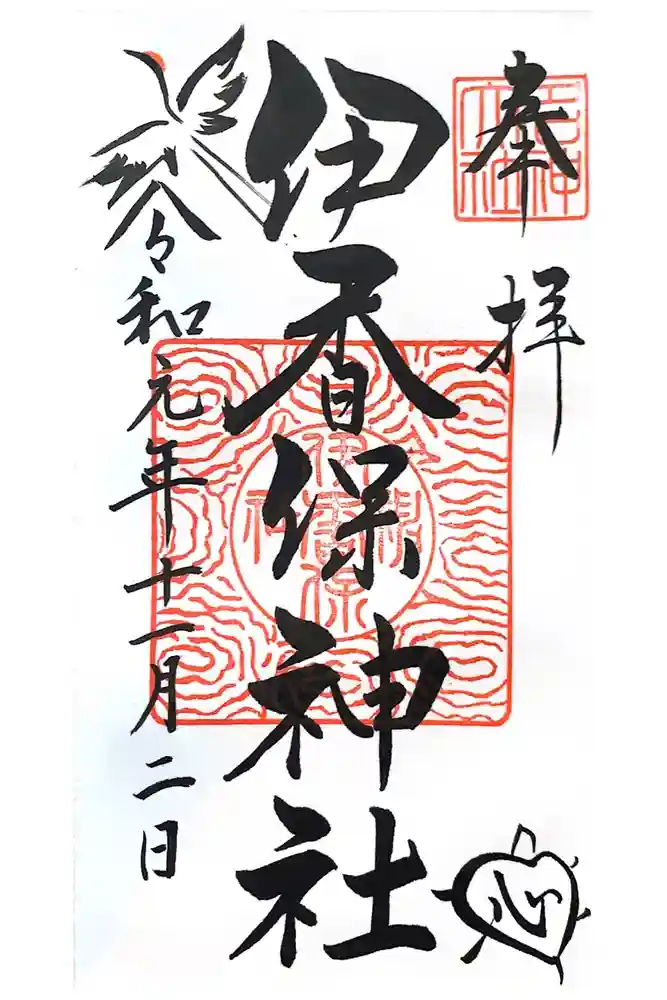 奉拝
伊香保神社
令和元年十一月二日
心